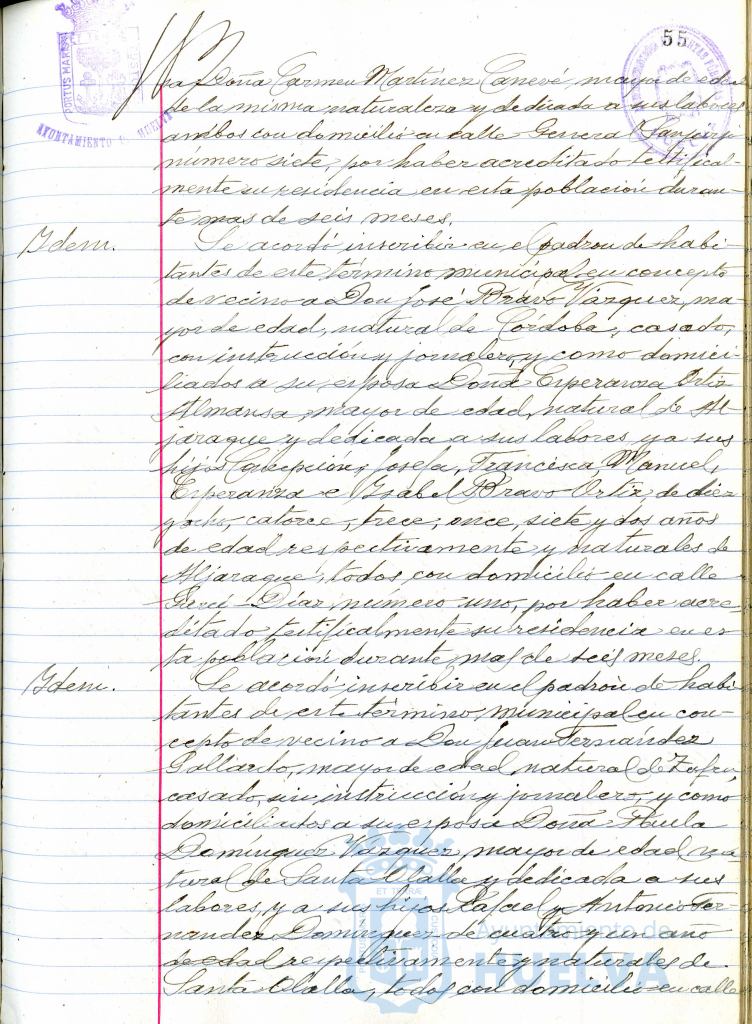 55
PORTUS MARIS
AYUNTAMIENTO DE HUELVA
ra Doña Carmen Martínez Canevé, mayor de edad
de la misma naturaleza y dedicada a sus labores
ambos con domicilio en calle General
número siete, por haber acreditado testifical-
mente su residencia en esta población duran-
te mas de seis meses.
Idem.
Se acordó inscribir en el padron de habi-
tantes de este término municipal en concepto
de vecino a Don José Bravo Vázquez, ma-
yor de edad, natural de Córdoba, casado,
con instrucción y jornalero, y como domici-
liados a su esposa Doña Esperanza Ortiz
Almansa, mayor de edad, natural de Al-
jaraque y dedicada a sus labores y a sus
hijos Concepción, Josefa, Francisca, Manuel,
Esperanza e Isabel Bravo Ortiz, de diez
y ocho, catorce, trece, once, siete y dos años
de edad respectivamente y naturales de
Aljaraque, todos con domicilio en calle
Díaz, número uno, por haber acre-
ditado testificalmente su residencia en es-
ta población durante mas de seis meses.
Idem.
Se acordó inscribir en el padron de habi-
tantes de este término municipal en con-
cepto de vecino a Don Juan Fernández
Gallardo, mayor de edad, natural de Zafra
casado, sin instrucción y jornalero, y como
domiciliados a su esposa Doña Paula
Domínguez Vázquez, mayor de edad, na-
tural de Santa Olalla y dedicada a sus
labores, y a sus hijos Rafael y Antonio Fer-
nandez Dominguez de cuatro y un año
de edad respectivamente y naturales de
Santa Olalla, todos con domicilio en calle
Ayuntamiento de
HUELVA